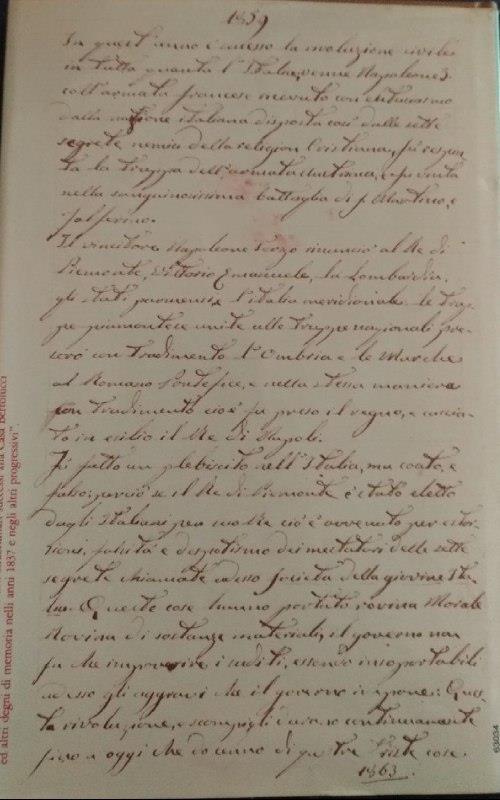 1859
In quest'anno è successo la rivoluzione civile
in tutta quanta l'Italia, venne Napoleone 3.
coll'armata francese ricevuto con entusiasmo
dalla nazione italiana disposta così dalle sette
segrete nemici della religion Cristiana, fù respin
ta la truppa dell'armata austriaca, e fu vinta
nella sanguinosissima battaglia di S. Martino, e
Solferino.
Il vincitore Napoleone Terzo rinunciò al Re di
Piemonte, Vittorio Emanuele, la Lombardia,
gli stati parmensi e l'italia meridionale. le trup
pe piamontese unite alle truppe nazionali pre
sero con tradimento l'Ombria e le Marche
al Romano Pontefice, e nella stessa maniera
con tradimento cioè fu preso il regno, e caccia
to in esilio il Re di Napoli.
Fù fatto un plebiscito nell'Italia, ma coato, e
falso; perciò se il Re di Piemonte è stato eletto
dagli Italiani per suo Re ciò è avvenuto per estor
sioni, falsità e despotismo dei mestatori delle sette
segrete chiamate adesso società della giovine Ita
lia. Queste cose hanno portato rovina Morale
Rovina di sostanze materiali, il governo non
fa che impoverire i sudditi, essendo insoportabili
adesso gli aggravi che il governo impone: Ques
ta rivoluzione, e scompigli durano continuamente
fino a oggi che do cenno di queste triste cose.
1863.
ed altri degni di memoria nelli anni 1837 e negli altri progressivi".
successi alla Casa Bertolucci
63034